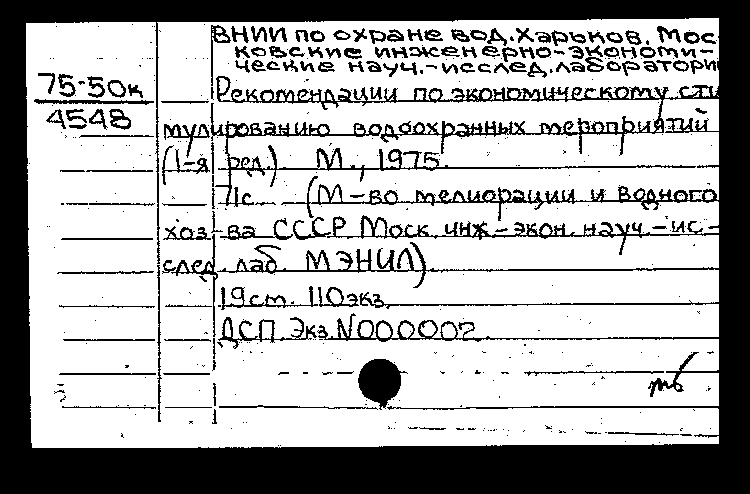 ВНИИ по охране вод. Харьков. Мос
ковские инженерно-экономи-
ческие науч.-исслед. лаборатории
75-50к
4548
Рекомендации по экономическому сти
мулированию водоохранных мероприятий
(1-я ред.) М., 1975.
71с (М-во мелиорации и водного
хоз-ва СССР Моск. инж.-экон. науч.-ис-
след. лаб. МЭНИЛ).
19см. 110экз.
ДСП. Экз. N000002.